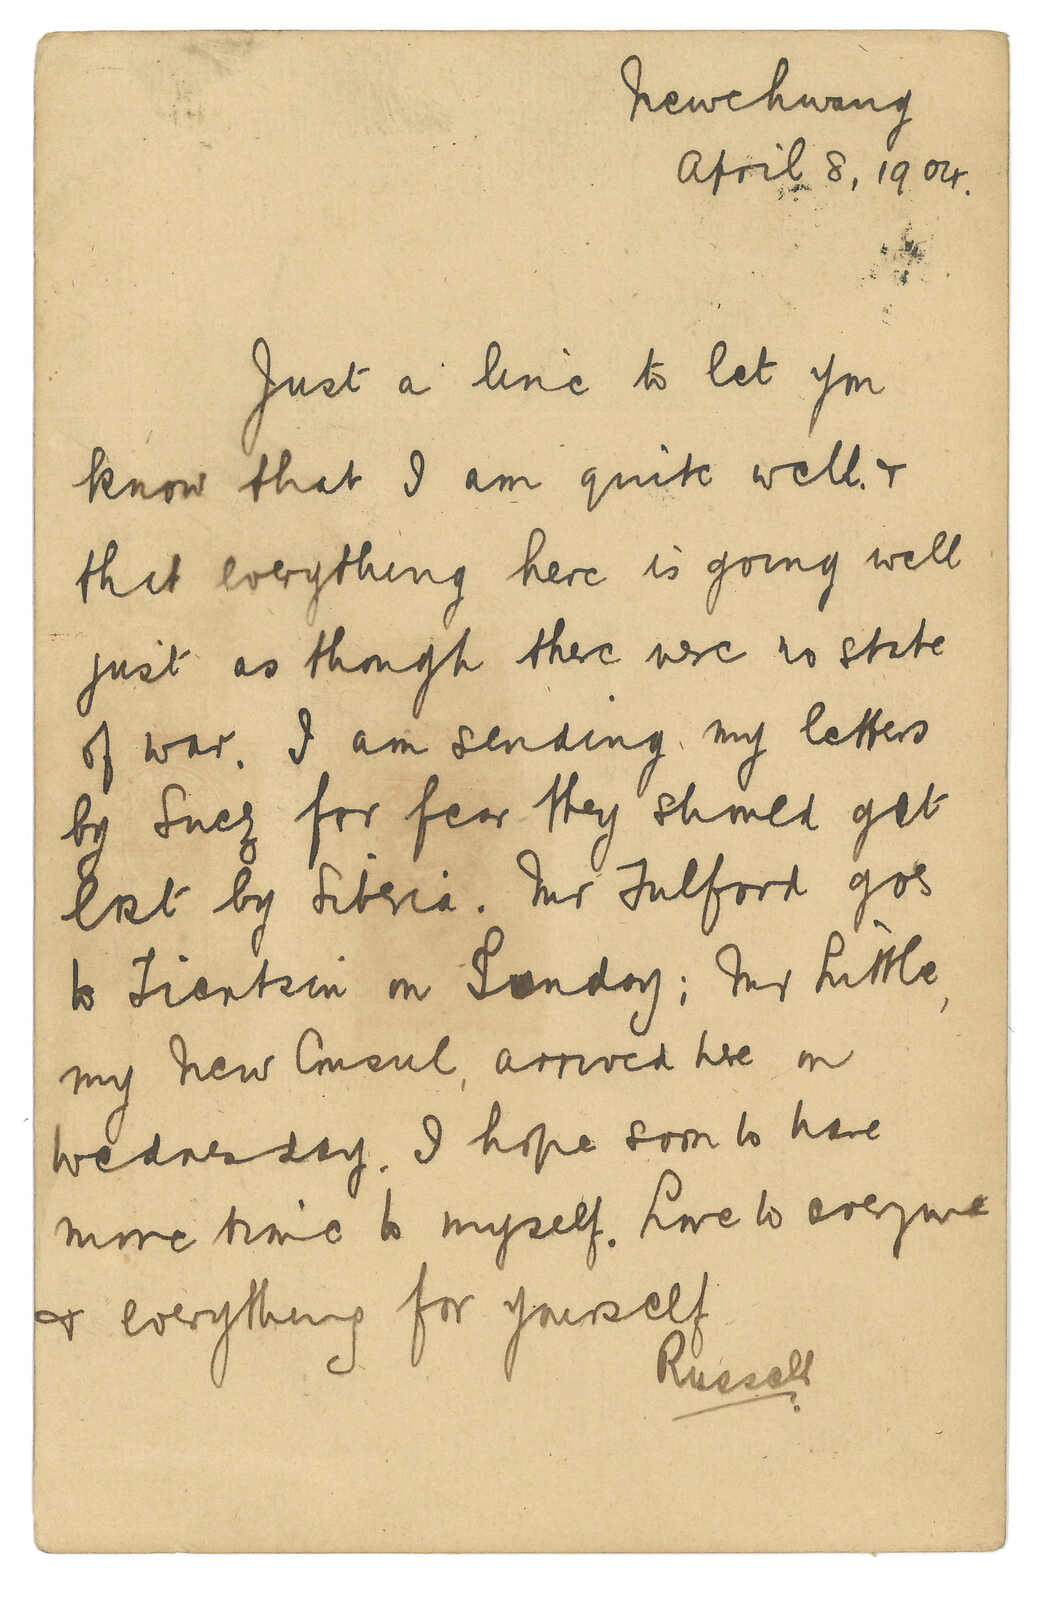 Newchwang
April 8, 1904.
Just a line to let you
know that I am quite well. &
that everything here is going well
just as though there were no state
of war. I am sending my letters
by Suez for fear they should get
lost by Siberia. Mr Fulford goes
to Tientsin on Sunday; Mr Little,
my new Consul, arrived here on
Wednesday. I hope soon to have
more time to myself. Love to everyone
& everything for yourself
Russell.